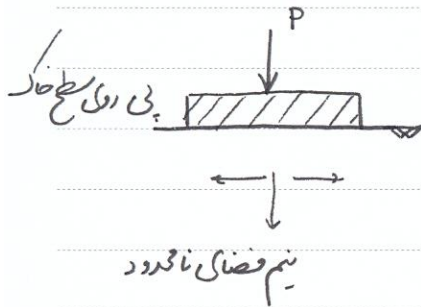 P
پی روی سطح خاک
نیم فضای نامحدود